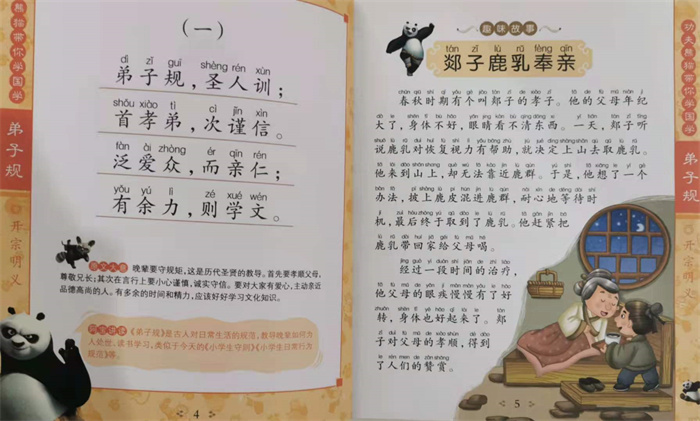 熊猫带你学国学
弟子规
开宗明义
（一）
dì zǐ guī shèng rén xùn
弟子规，圣人训；
shǒu xiào tì cì jǐn xìn
首孝弟，次谨信。
fàn ài zhòng ér qīn rén
泛爱众，而亲仁；
yǒu yú lì zé xué wén
有余力，则学文。
晚辈要守规矩，这是历代圣贤的教导。首先要孝顺父母，
尊敬兄长；其次在言行上要小心谨慎，诚实守信。要对大家有爱心，主动亲近
品德高尚的人。有多余的时间和精力，应该好好学习文化知识。
《弟子规》是古人对日常生活的规范，教导晚辈如何为
人处世、读书学习，类似于今天的《小学生守则》《小学生日常行为
规范》等。
4
趣味故事
tán zǐ lù rǔ fèng qīn
郯子鹿乳奉亲
春秋时期有个叫郯子的孝子。他的父母年纪
大了，身体不好，眼睛看不清东西。一天，郯子听
说鹿乳对恢复视力有帮助，就决定上山去取鹿乳。
他来到山上，却无法靠近鹿群。于是，他想了一个
办法，披上鹿皮混进鹿群，耐心地等待时
机，最后终于取到了鹿乳。他赶紧把
鹿乳带回家给父母喝。
经过一段时间的治疗，
他父母的眼疾慢慢有了好
转，身体也好起来了。郯
子对父母的孝顺，得到
了人们的赞赏。
5
功夫熊猫带你学国学
弟子规
开宗明义